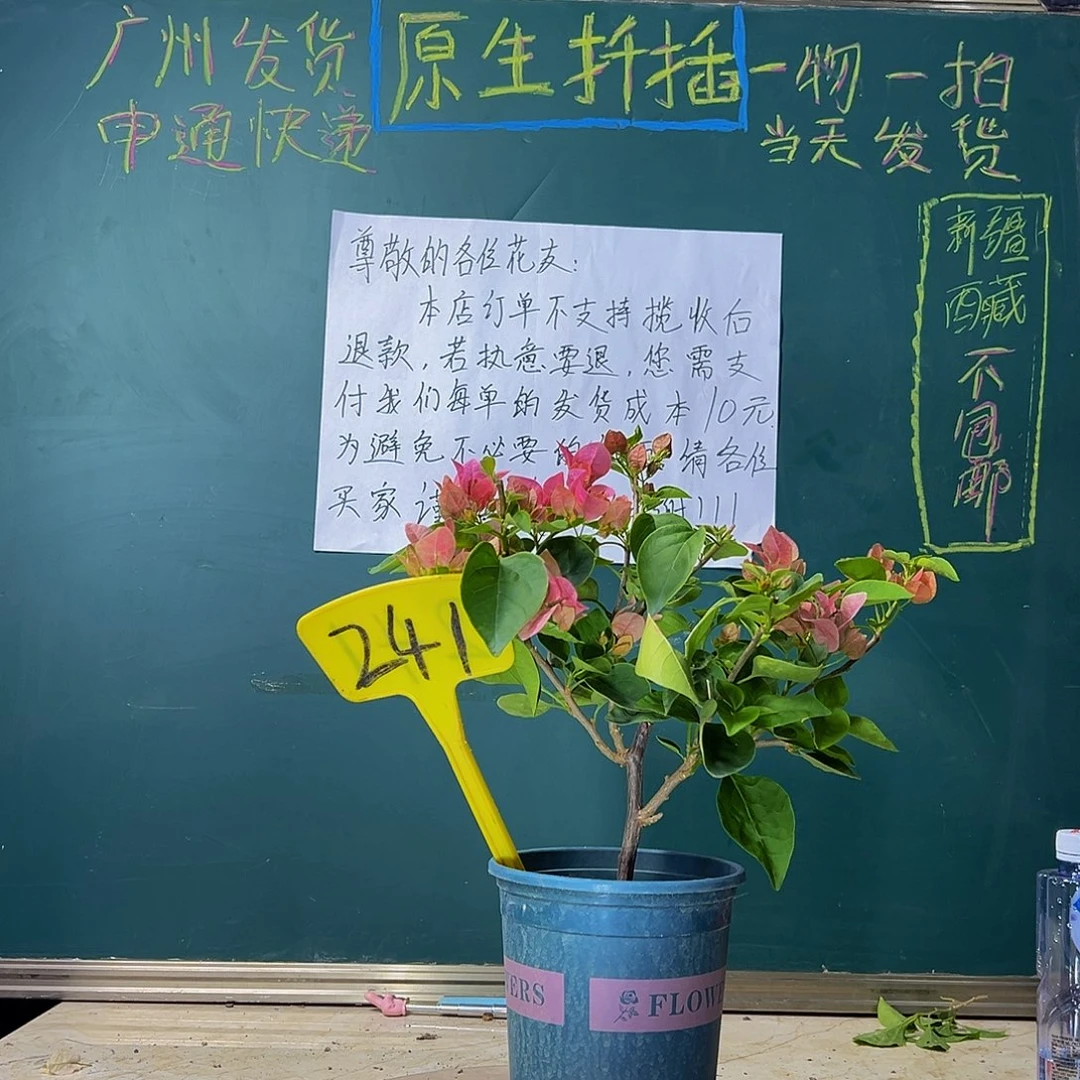 广州发货
申通快递
原生扦插
一物一拍
当天发货
新疆
西藏
不包邮
尊敬的各位花友:
本店订单不支持揽收后
退款,若执意要退,您需支
付我们每单的发货成本10元
为避免不必要的 请各位
买家谨 !!!
241
ERS
FLOWE